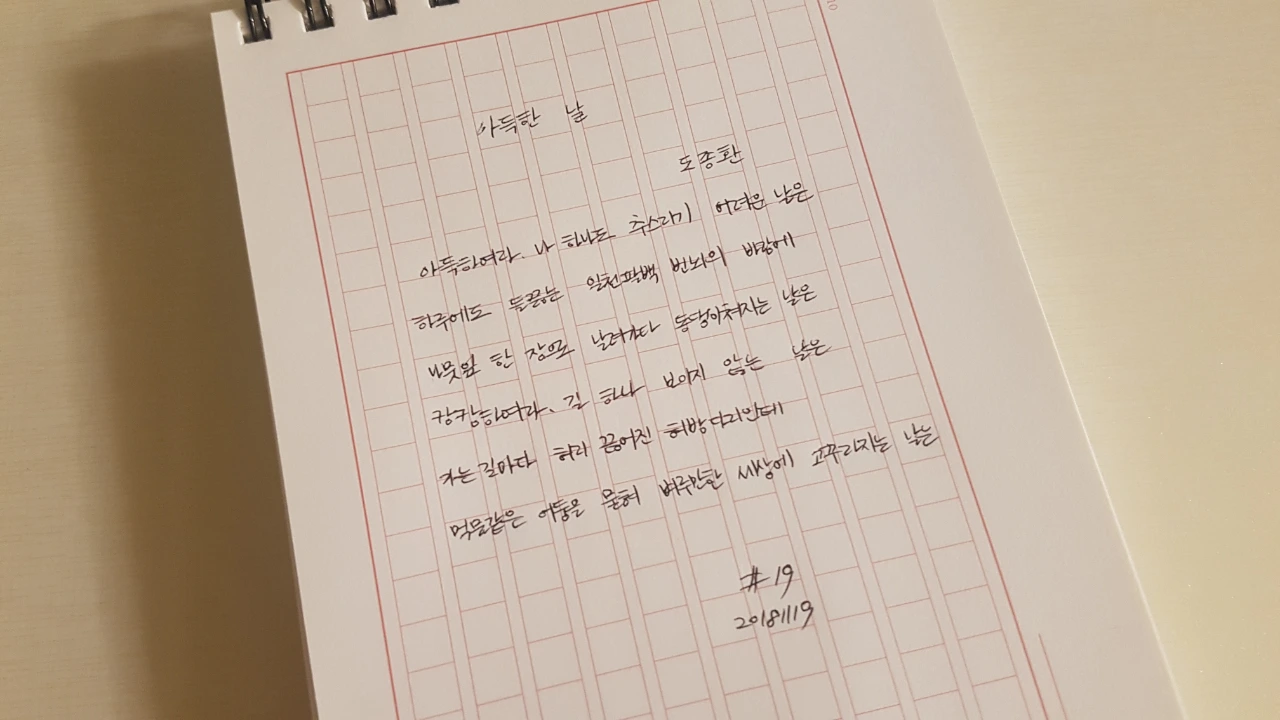 아득한 날
도종환
아득하여라. 나 하나도 추스리기 어려운 날은
하루에도 들끓는 일천팔백 번뇌의 바람에
나뭇잎 한 장으로 날려가다 동댕이쳐지는 날은
캄캄하여라. 길 하나 보이지 않는 날은
가는 길마다 허리 끊어진 허방다리인데
먹물같은 어둠은 몰려 벼루만한 세상에 고꾸라지는 날은
#19
20181119